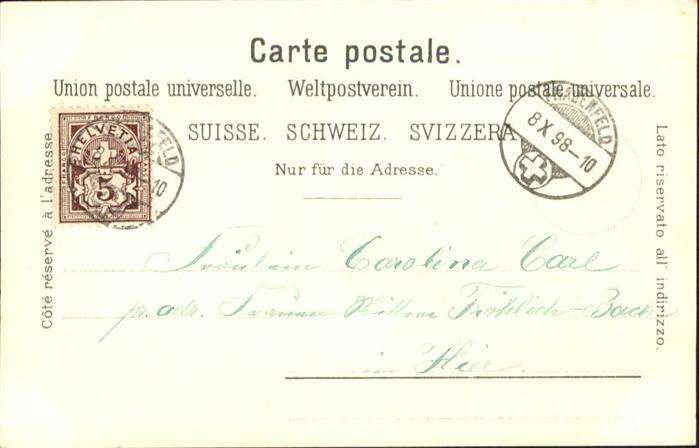 Carte postale.
Union postale universelle. Weltpostverein. Unione postale universale.
SUISSE. SCHWEIZ. SVIZZERA
Nur für die Adresse.
Côté réservé à l'adresse.
Lato riservato all' indirizzo.
FRANCO
HELVETIA
5
FELD
10
FRAUENFELD
8 X 98-10
Fräulein Carolina Carl
pr. adr. Frauen Fröhlich-
in Hier